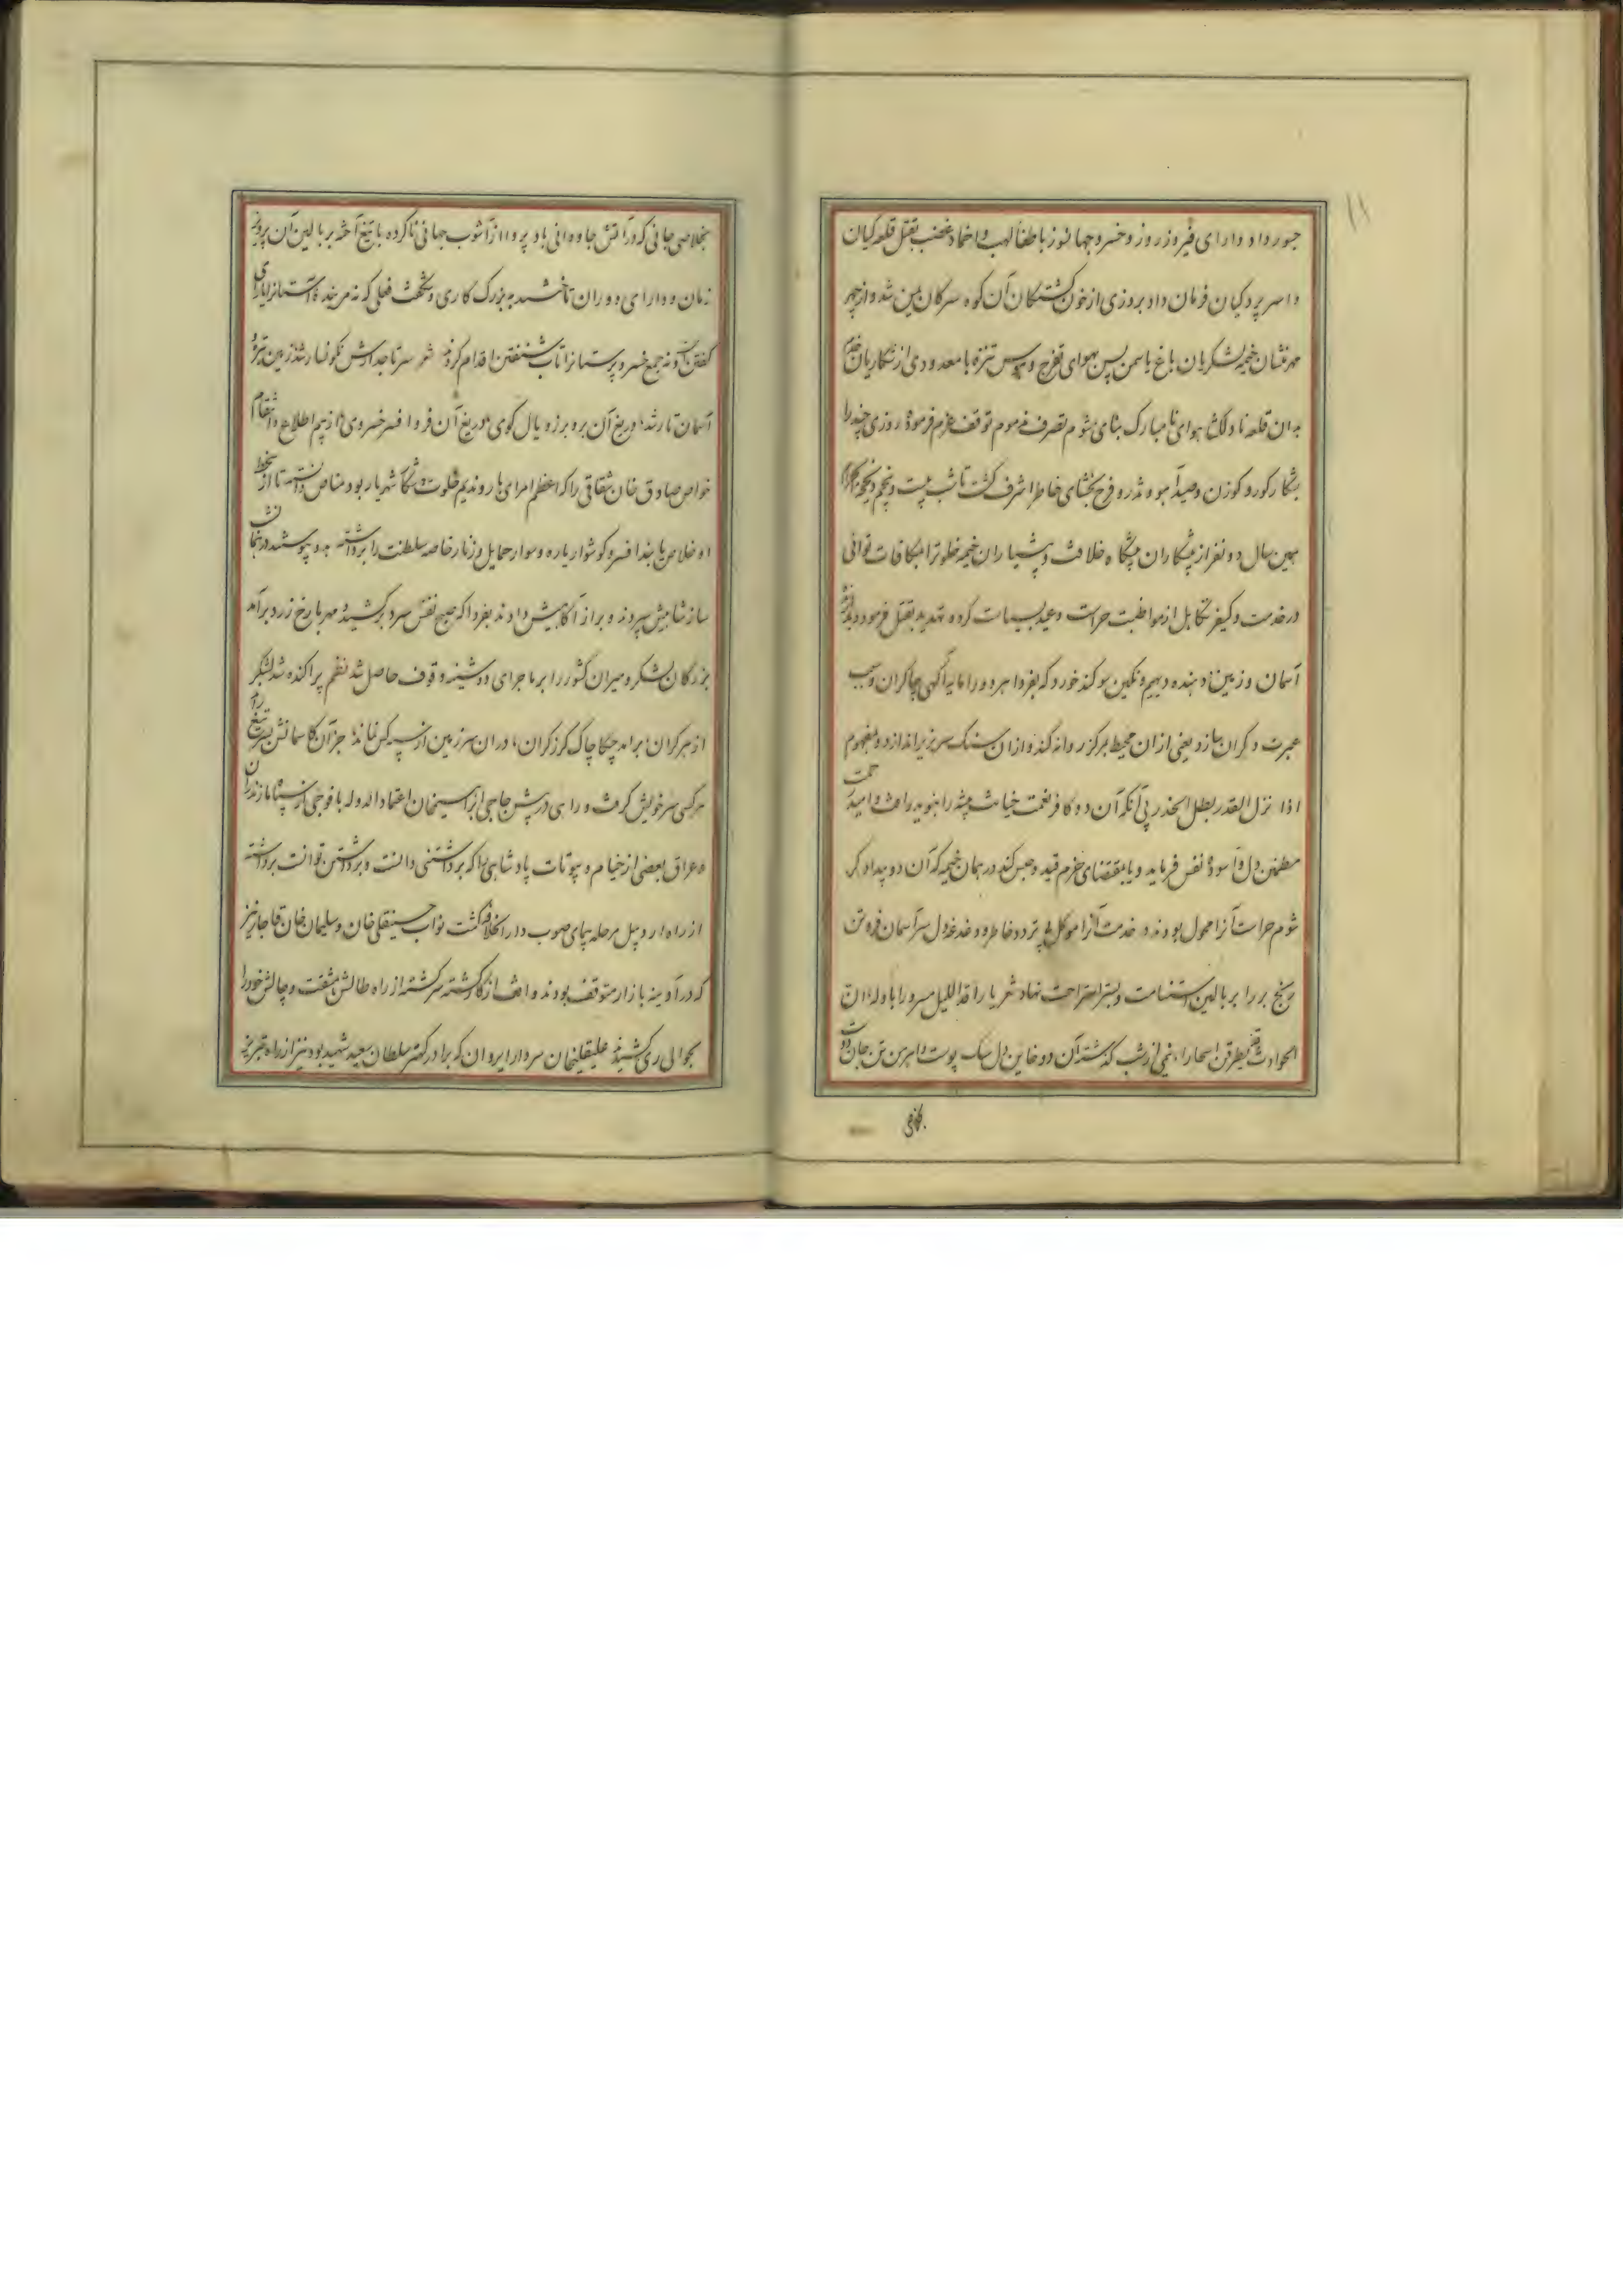 عبور داد دارای فیروز روز و خسرو جهانسوز باطفأ لهب و اخماد غضب بقتل قلعه کیان
و اسر پردکیان فرمان داد بروزی از خون کشتکان آن کوه سرکان شد و از چهر
مهرنشان خیمه لشکریان باغ یاسمن پس بهوای تفرج و تنزه با معدودی از شکاریان
بدان قلعه نادلکش هوای نامبارک بنای شوم تصرف مذموم توقف عزم فرموده روزی چند را
بشکار کور و کوزن و صید آهو و تذرو فرح بخشای خاطر اشرف کشت تا شب بیست و پنجم
همین سال دو نفر از پیشکاران پیشکاه خلافت و خیمه خلوت را بمکافات توانی
در خدمت و کیفر تکاهل از مواظبت حراست وعید بسیاست کرده تهدید بقتل فرمود
آسمان و زمین و دهنده دیهیم و نکین سوکند خورد که بفردا هر دو را مایه آکهی چاکران و سبب
عبرت دکران سازد یعنی از ان محیط بمرکز روانه کند و از ان سنک سر بزیر اندازد و بمفهوم
اذا نزل القدر بطل الحذر بی آنکه آن دو کافر نعمت خیانت پیشه را بنوید رافت و امید رحمت
مطمئن دل و آسوده نفس فرماید و یا بمقتضای حزم قید و حبس کند در همان خیمه که آن دو بیدادکر
شوم حراست آنرا محول بودند و خدمت آنرا موکل بی تردد خاطر و دغدغه دل سر آسمان فر و تن
بر را بر بالین استنامت و بستر استراحت نهاد شعر یا راقد اللیل مسرورا باوله ان
الحوادث قد یطرقن اسحارا نیمی از شب کذشته آن دو خاین دل سک پوست و اهرمن تن
بخلاصی
بخلاصی جانی که در آتش جاودانی باد پروا از آشوب جهانی ناکرده با تیغ آخته بر بالین آن پرویز
زمان و دارای دوران تاخته به بزرک کاری و شکفت فعلی که نه مر
کفتن و نه جمع خسرو پرستانرا تاب شنفتن اقدام کردند شعر سر تاجدارش نکونسار شد زمین تیره و
آسمان تار شد دریغ آن بر و برز و یال کوی دریغ آن فر و افسر خسروی از بیم اطلاع و انتقام
خواص صادق خان شقاقی را که اعظم امرای بار و ندیم خلوت شهریار بود مناص دانسته تا از سخط
او خلاص یابند افسر و کوشوار یاره و سوار حمایل و زنار خاصه سلطنت را برداشته بدو پیوستند
ساز شاهیش سپردند و بر راز آکاهیش دادند بفردا که صبح نفس سرد برکشید و مهر با رخ زرد برآمد
بزرکان لشکر و میران کشور را بر ماجرای دوشینه وقوف حاصل شد نظم پراکنده شد لشکر
از هر کران برامد چکاچاک کرز کران دران سرزمین از سپه کس نماند جز آن کاسمانش
هر کسی سر خویش کرفت و راهی در پیش حاجی ابراهیمخان اعتماد الدوله با فوجی از سپاه مازندران
و عراق بعضی از خیام و بیوتات پادشاهی را که برداشتنی دانست و برداشتن توانست برداشته
از راه اردبیل مرحله پیمای صوب دار الخلافه کشت نواب حسینقلی خان و سلیمان خان قاجار نیز
که در آدینه بازار متوقف بودند واقف از کار کشته سرکشته از راه طالش بمشقت و چالش خود را
بحوالی ری کشیدند علیقلیخان سردار ایروان که برادر کهتر سلطان سعید شهید بود نیز از راه تبریز